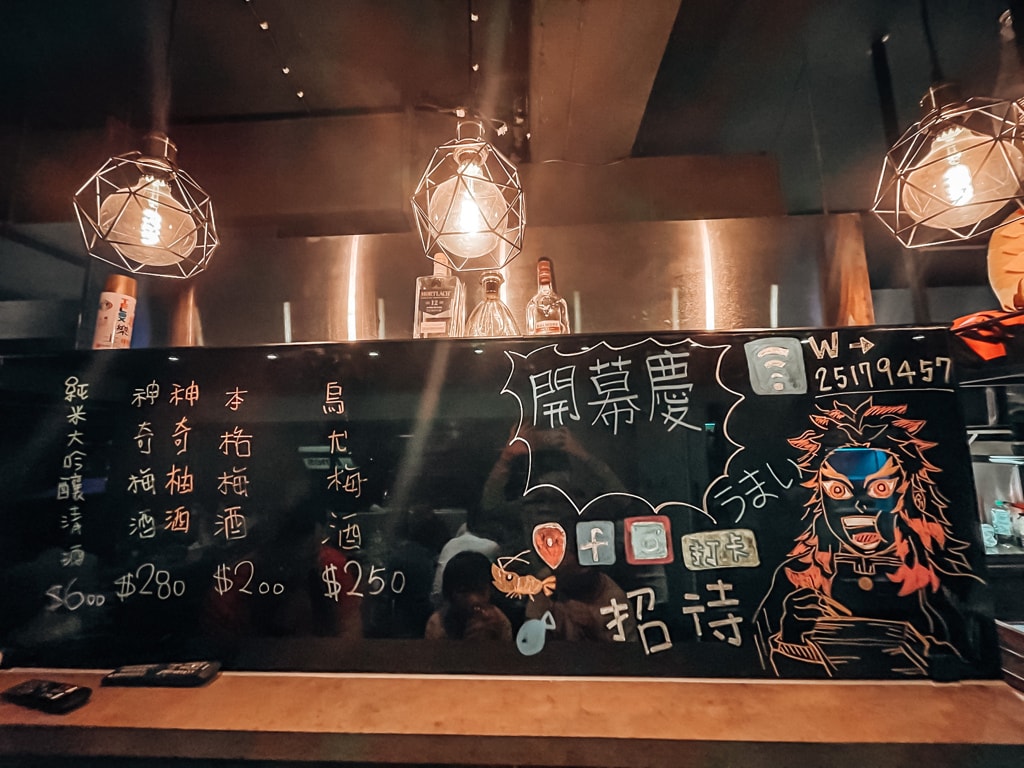 純米大吟釀清酒
$600
神奇梅酒
神奇柚酒
$280
本格梅酒
$200
烏尤梅酒
$250
MORTLACH
12
開幕慶
W→
25179457
うまい
打卡
招待